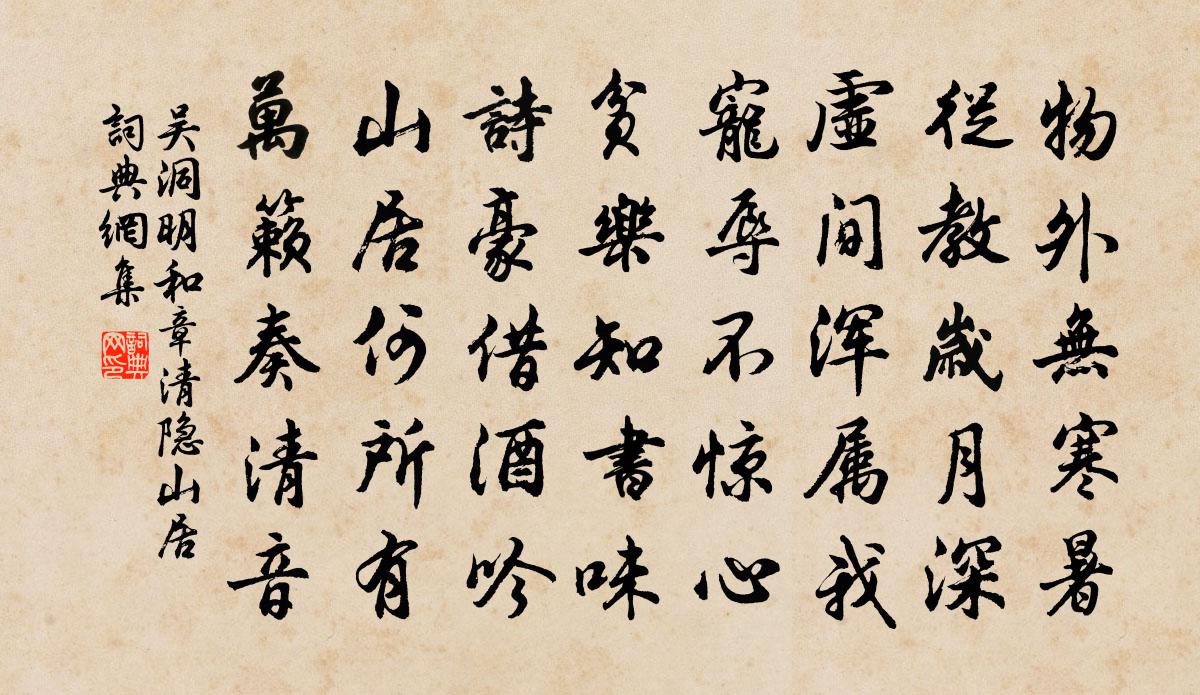 物外無寒暑
從教歲月深
虛间浑属我
寵辱不惊心
貧樂知書味
詩豪借酒吟
山居何所有
萬籟奏清音
吴洞明和章清隐山居
詞典網集
詞典网印